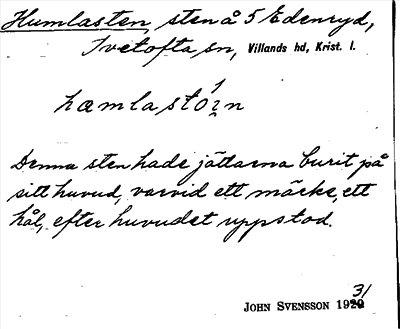 Humlasten, sten å 5 Edenryd,
Ivetofta sn, Villands hd, Krist. l.
hæmlastóın
Denna sten hade jättarna burit på
sitt huvud, varvid ett märke, ett
hål, efter huvudet uppstod.
JOHN SVENSSON 1931